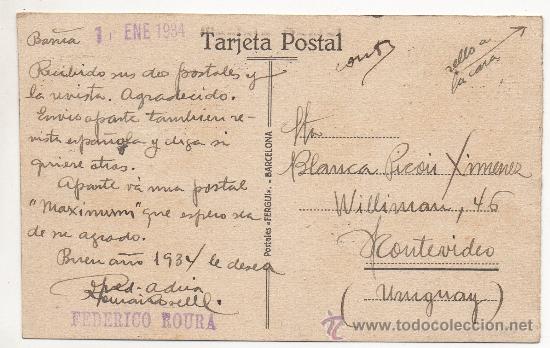 Barna
1 ENE 1934
Tarjeta Postal
contó
sello a
la cara
Recibido sus dos postales y
la revista. Agradecido.
Envio aparte tambien re-
vista española y diga si
quiere otras.
Aparte vá una postal
"Maximum" que espero sea
de su agrado.
Buen año 1934 le desea
FEDERICO ROURA
Postales «FERGUI». - BARCELONA
Sta
Blanca Picois Ximenez
Williman, 46
Montevideo
(Uruguay)
www.todocoleccion.net